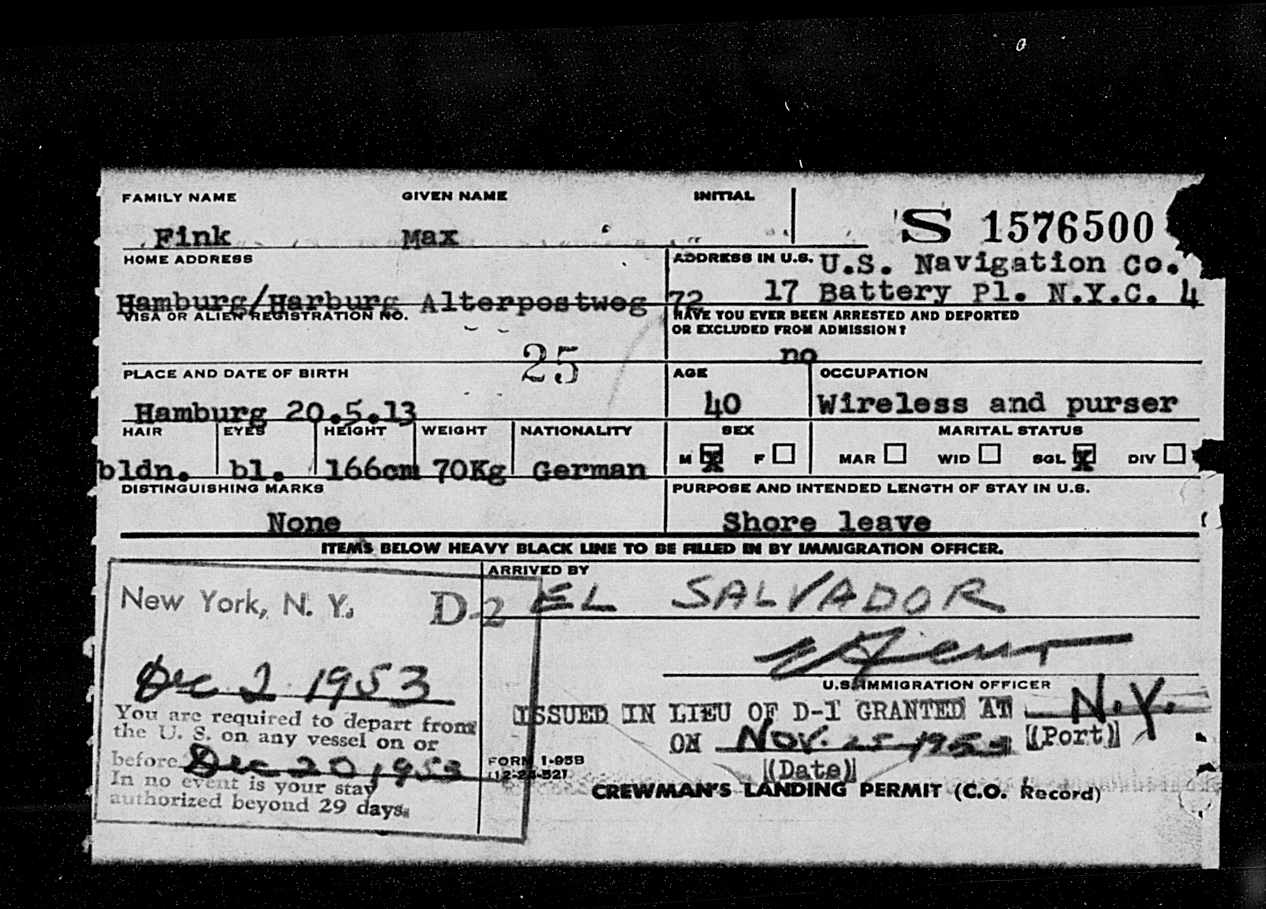 FAMILY NAME GIVEN NAME INITIAL
Fink Max
S 1576500
HOME ADDRESS
Hamburg/Harburg Alterpostweg 72
ADDRESS IN U.S. U.S. Navigation Co.
17 Battery Pl. N.Y.C. 4
VISA OR ALIEN REGISTRATION NO.
25
HAVE YOU EVER BEEN ARRESTED AND DEPORTED
OR EXCLUDED FROM ADMISSION?
no
PLACE AND DATE OF BIRTH
Hamburg 20.5.13
AGE
40
OCCUPATION
Wireless and purser
HAIR EYES HEIGHT WEIGHT NATIONALITY
bldn. bl. 166cm 70Kg German
SEX
M X F
MARITAL STATUS
MAR WID SGL X DIV
DISTINGUISHING MARKS
None
PURPOSE AND INTENDED LENGTH OF STAY IN U.S.
Shore leave
ITEMS BELOW HEAVY BLACK LINE TO BE FILLED IN BY IMMIGRATION OFFICER.
New York, N. Y. D-2
Dec 2 1953
You are required to depart from
the U. S. on any vessel on or
before Dec 20, 1953
In no event is your stay
authorized beyond 29 days.
ARRIVED BY
EL SALVADOR
U.S. IMMIGRATION OFFICER
ISSUED IN LIEU OF D-1 GRANTED AT N.Y.
ON Nov. 25 1953 (Port)
(Date)
FORM I-95B
CREWMAN'S LANDING PERMIT (C.O. Record)